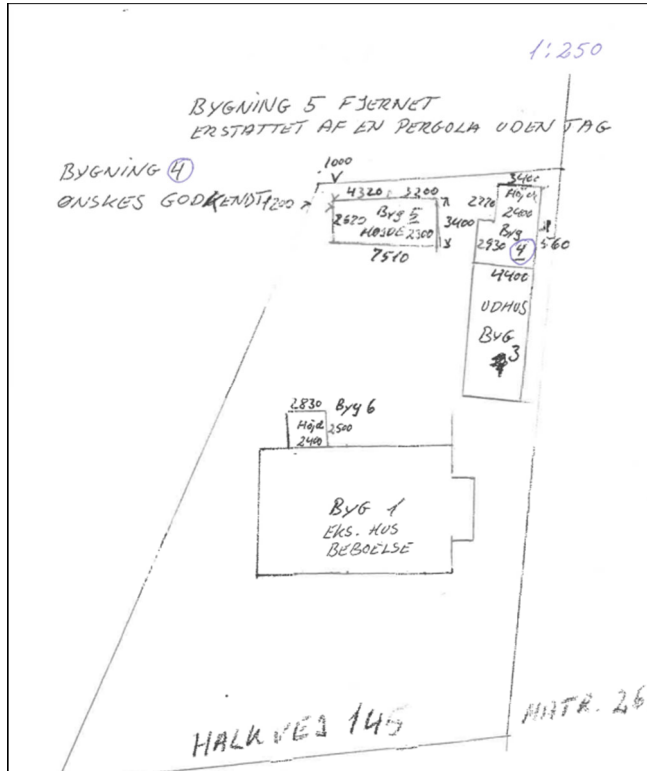 1:250
BYGNING 5 FJERNET
ERSTATTET AF EN PERGOLA UDEN TAG
BYGNING 4
ØNSKES GODKENDT
1000
1200
4320
3200
2620
Byg 5
HØJDE 2300
3400
7510
3400
2770
Højde
2400
Byg
4
2930
560
4400
UDHUS
BYG
3
2830
Byg 6
Højde
2400
2500
BYG 1
EKS. HUS
BEBOELSE
HALKVEJ 145
MATR. 26